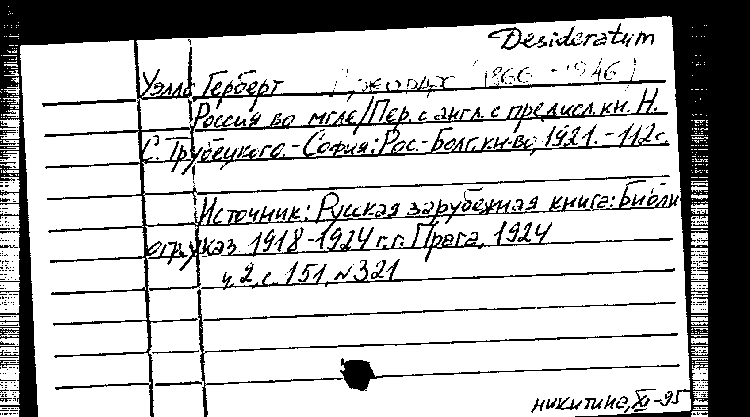 Desideratum
Уэллс Герберт Джордж (1866-1946)
Россия во мгле/Пер. с англ. с предисл. кн. Н.
С. Трубецкого.-София: Рос-Болг. кн-во, 1921.-112с.
Источник: Русская зарубежная книга: Библи
огр. указ. 1918-1924 г.г. Прага, 1924
ч. 2, с. 151, №321
никитина, XI-95